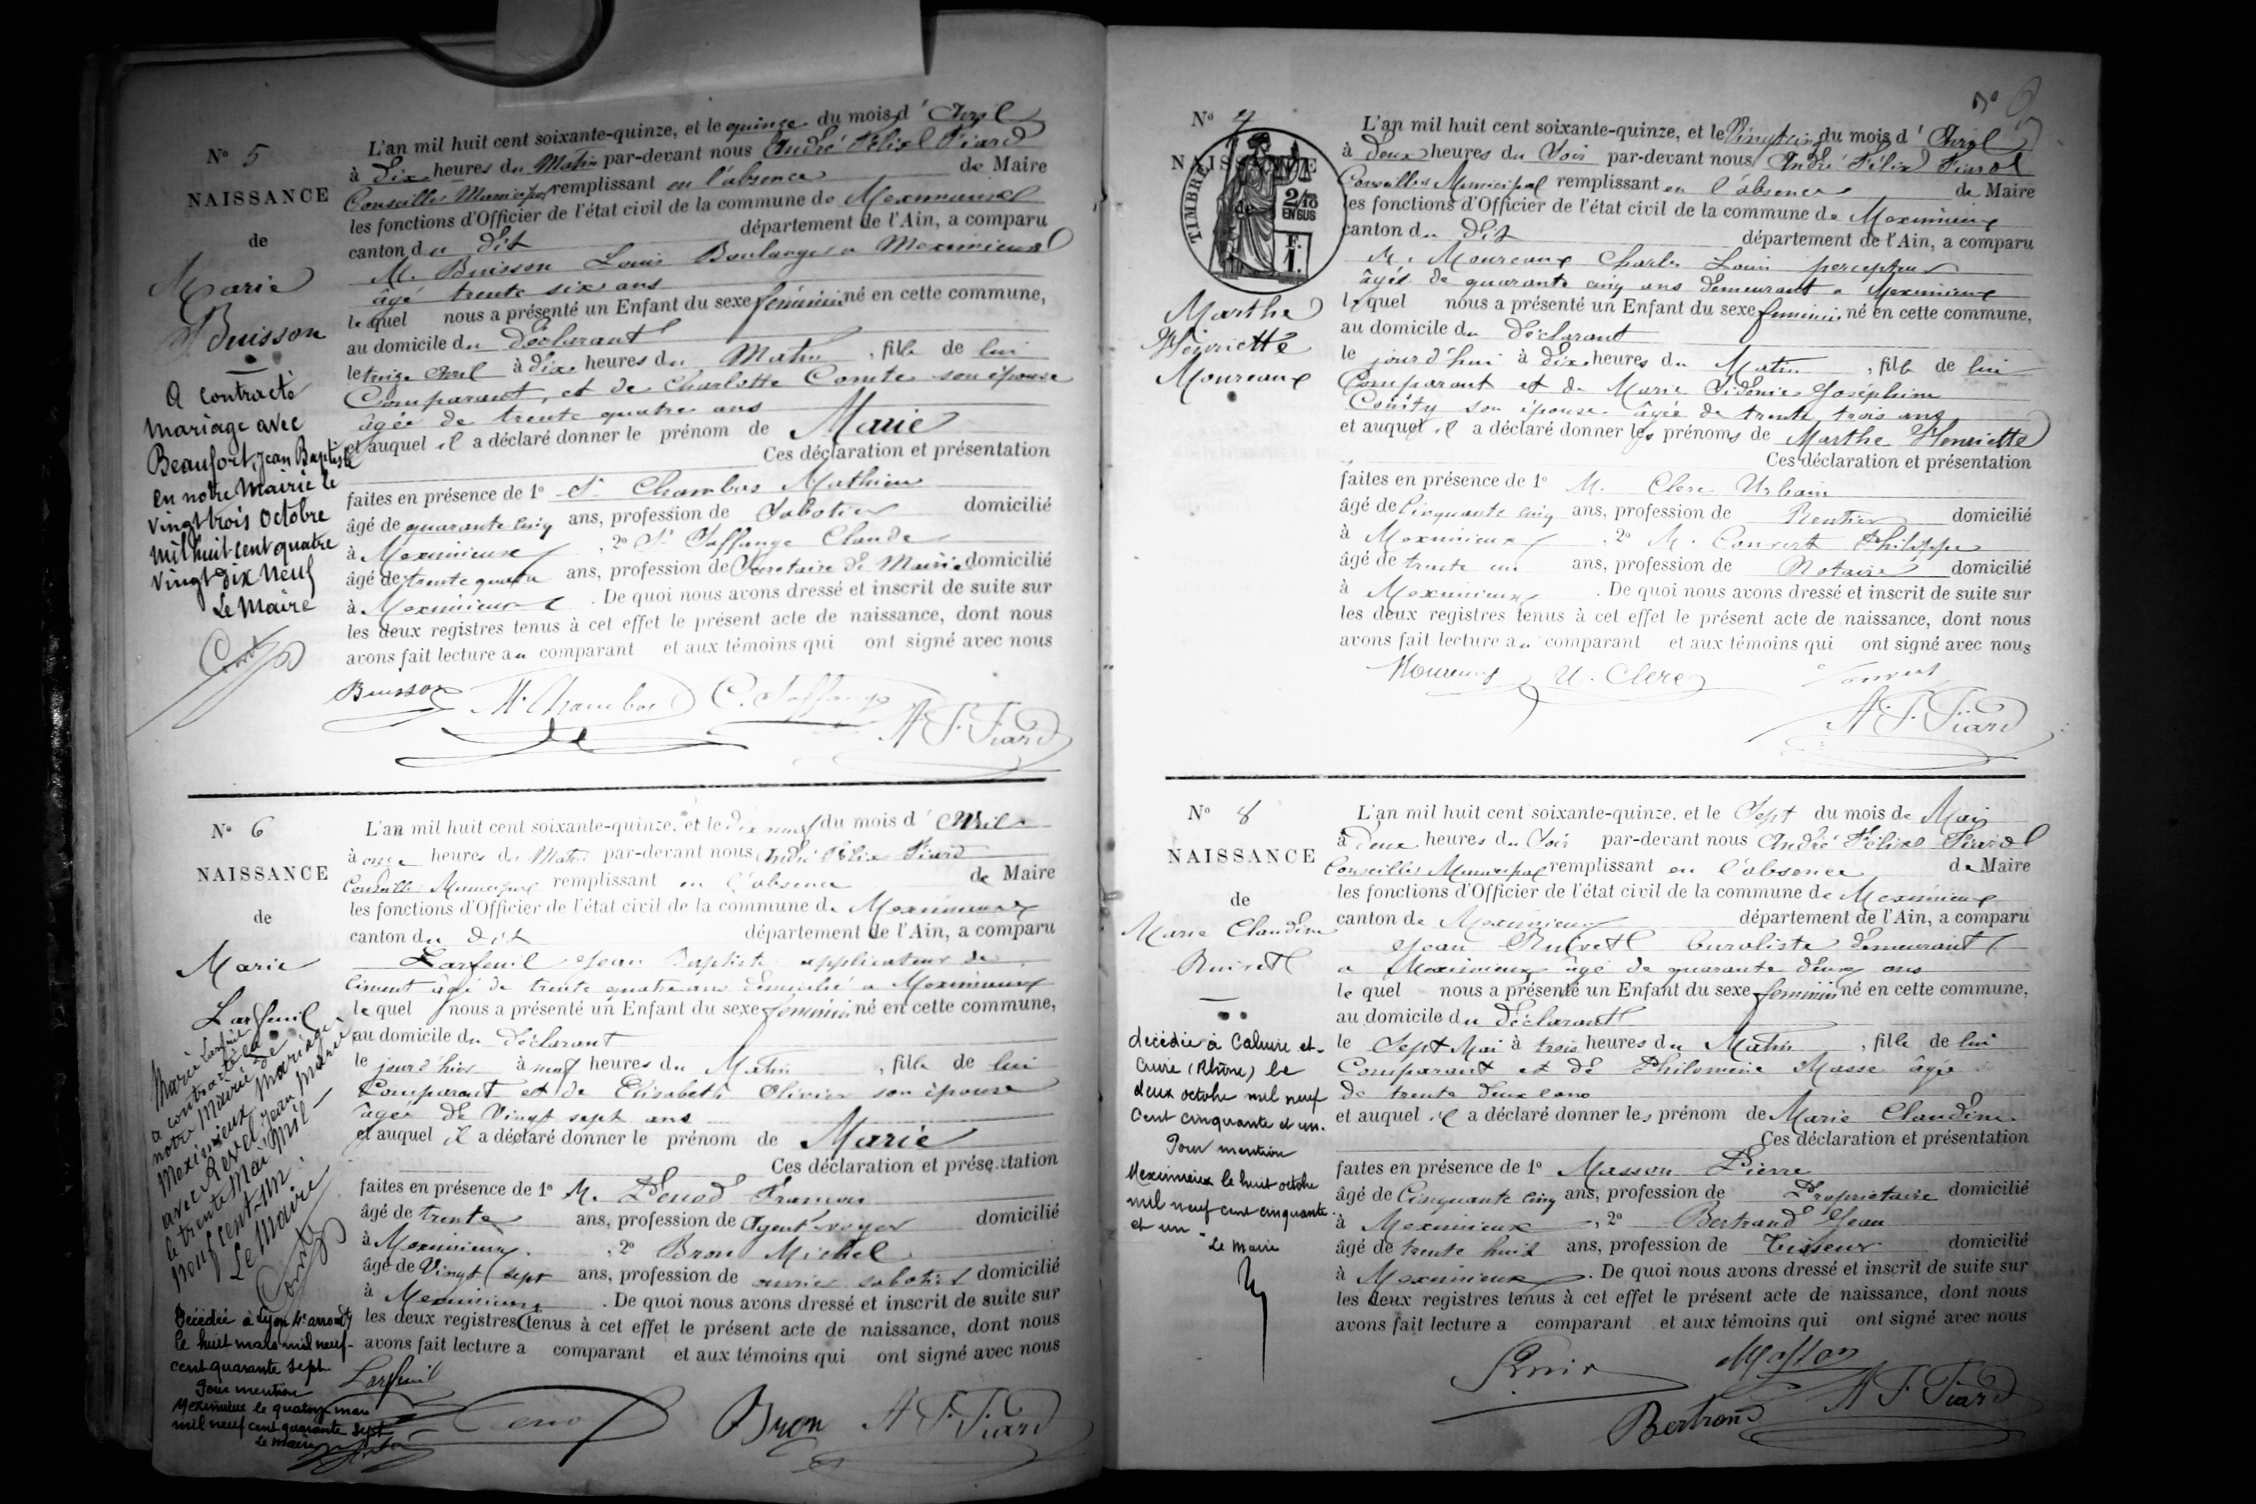 N° 5
NAISSANCE
de
Marie
Buisson
A contracté
mariage avec
Beaufort, Jean Baptiste
en notre Mairie le
vingt trois Octobre
mil huit cent quatre
vingt dix neuf
Le Maire
L'an mil huit cent soixante-quinze, et le quinze du mois d' Avril
à Dix heures du Matin par-devant nous André Félix Piard
Conseiller Municipal remplissant en l'absence de Maire
les fonctions d'Officier de l'état civil de la commune de Meximieux
canton du dit département de l'Ain, a comparu
M. Buisson Louis Boulanger a Meximieux
âgé trente six ans
lequel nous a présenté un Enfant du sexe féminin né en cette commune,
au domicile du Déclarant
le treize Avril à dix heures du Matin , fille de lui
Comparant, et de Charlotte Comte son épouse
âgée de trente quatre ans
et auquel il a déclaré donner le prénom de Marie
Ces déclaration et présentation
faites en présence de 1° Sr Chambos Mathieu
âgé de quarante cinq ans, profession de Sabotier domicilié
à Meximieux , 2° Sr Saffange Claude
âgé de trente quatre ans, profession de Secretaire de Mairie domicilié
à Meximieux . De quoi nous avons dressé et inscrit de suite sur
les deux registres tenus à cet effet le présent acte de naissance, dont nous
avons fait lecture au comparant et aux témoins qui ont signé avec nous
Buisson M. Chambos C. Saffange
A. F. Piard
N° 6
NAISSANCE
de
Marie
Larfeuil
Marie Larfeuil
a contracté en
notre mairie de
Meximieux mariage
avec Rexel, Jean Marie
le trente Mai mil
neuf cent un.
Le Maire
Décédée à Lyon 4e arrondt
le huit mars mil neuf
cent quarante sept
Pour mention
Meximieux le quatorze mars
mil neuf cent quarante sept
Le maire
L'an mil huit cent soixante-quinze, et le dix neuf du mois d' Avril
à onze heures du Matin par-devant nous André Félix Piard
Conseiller Municipal remplissant en l'absence de Maire
les fonctions d'Officier de l'état civil de la commune de Meximieux
canton du dit département de l'Ain, a comparu
Larfeuil Jean Baptiste applicateur de
ciment âgé de trente quatre ans domicilié a Meximieux
lequel nous a présenté un Enfant du sexe féminin né en cette commune,
au domicile du déclarant
le jour d'hier à neuf heures du Matin , fille de lui
Comparant et de Elisabeth Olivier son épouse
âgée de Vingt sept ans
et auquel il a déclaré donner le prénom de Marie
Ces déclaration et présentation
faites en présence de 1° M. Penod François
âgé de trente ans, profession de Agent voyer domicilié
à Meximieux , 2° Bron Michel
âgé de Vingt sept ans, profession de ouvrier sabotier domicilié
à Meximieux . De quoi nous avons dressé et inscrit de suite sur
les deux registres tenus à cet effet le présent acte de naissance, dont nous
avons fait lecture a comparant et aux témoins qui ont signé avec nous
Larfeuil
Bron A. F. Piard
N° 7
NAISSANCE
de
TIMBRE
2/10
EN SUS
F.
1.
Marthe
Henriette
Moureaux
L'an mil huit cent soixante-quinze, et le Vingt cinq du mois d' Avril
à deux heures du Soir par-devant nous André Félix Piard
Conseiller Municipal remplissant en l'absence de Maire
les fonctions d'Officier de l'état civil de la commune de Meximieux
canton du dit département de l'Ain, a comparu
M. Moureaux Charles Louis percepteur
âgé de quarante cinq ans demeurant a Meximieux
lequel nous a présenté un Enfant du sexe feminin né en cette commune,
au domicile du Déclarant
le jour d'hui à dix heures du Matin , fille de lui
Comparant et de Marie Sidonie Joséphine
son épouse âgée de trente trois ans
et auquel il a déclaré donner les prénoms de Marthe Henriette
Ces déclaration et présentation
faites en présence de 1° M. Clerc Urbain
âgé de Cinquante cinq ans, profession de Rentier domicilié
à Meximieux , 2° M. Convert Philippe
âgé de trente un ans, profession de Notaire domicilié
à Meximieux . De quoi nous avons dressé et inscrit de suite sur
les deux registres tenus à cet effet le présent acte de naissance, dont nous
avons fait lecture au comparant et aux témoins qui ont signé avec nous
Moureaux U. Clerc Convert
A. F. Piard
N° 8
NAISSANCE
de
Marie Claudine
décédée à Caluire et
Cuire (Rhône) le
deux octobre mil neuf
cent cinquante et un.
Pour mention
Meximieux le huit octobre
mil neuf cent cinquante
et un
Le Maire
L'an mil huit cent soixante-quinze, et le Sept du mois de Mai
à deux heures du Soir par-devant nous André Félix Piard
Conseiller Municipal remplissant en l'absence de Maire
les fonctions d'Officier de l'état civil de la commune de Meximieux
canton de Meximieux département de l'Ain, a comparu
Jean buraliste demeurant
a Meximieux âgé de quarante deux ans
lequel nous a présenté un Enfant du sexe feminin né en cette commune,
au domicile du Déclarant
le Sept Mai à trois heures du Matin , fille de lui
Comparant et de Philomène Masse âgée
de trente deux ans
et auquel il a déclaré donner les prénom de Marie Claudine
Ces déclaration et présentation
faites en présence de 1° Masson Pierre
âgé de Cinquante cinq ans, profession de Propriétaire domicilié
à Meximieux , 2° Bertrand Jean
âgé de trente huit ans, profession de Tisseur domicilié
à Meximieux . De quoi nous avons dressé et inscrit de suite sur
les deux registres tenus à cet effet le présent acte de naissance, dont nous
avons fait lecture a comparant et aux témoins qui ont signé avec nous
Masson
Bertrand A. F. Piard